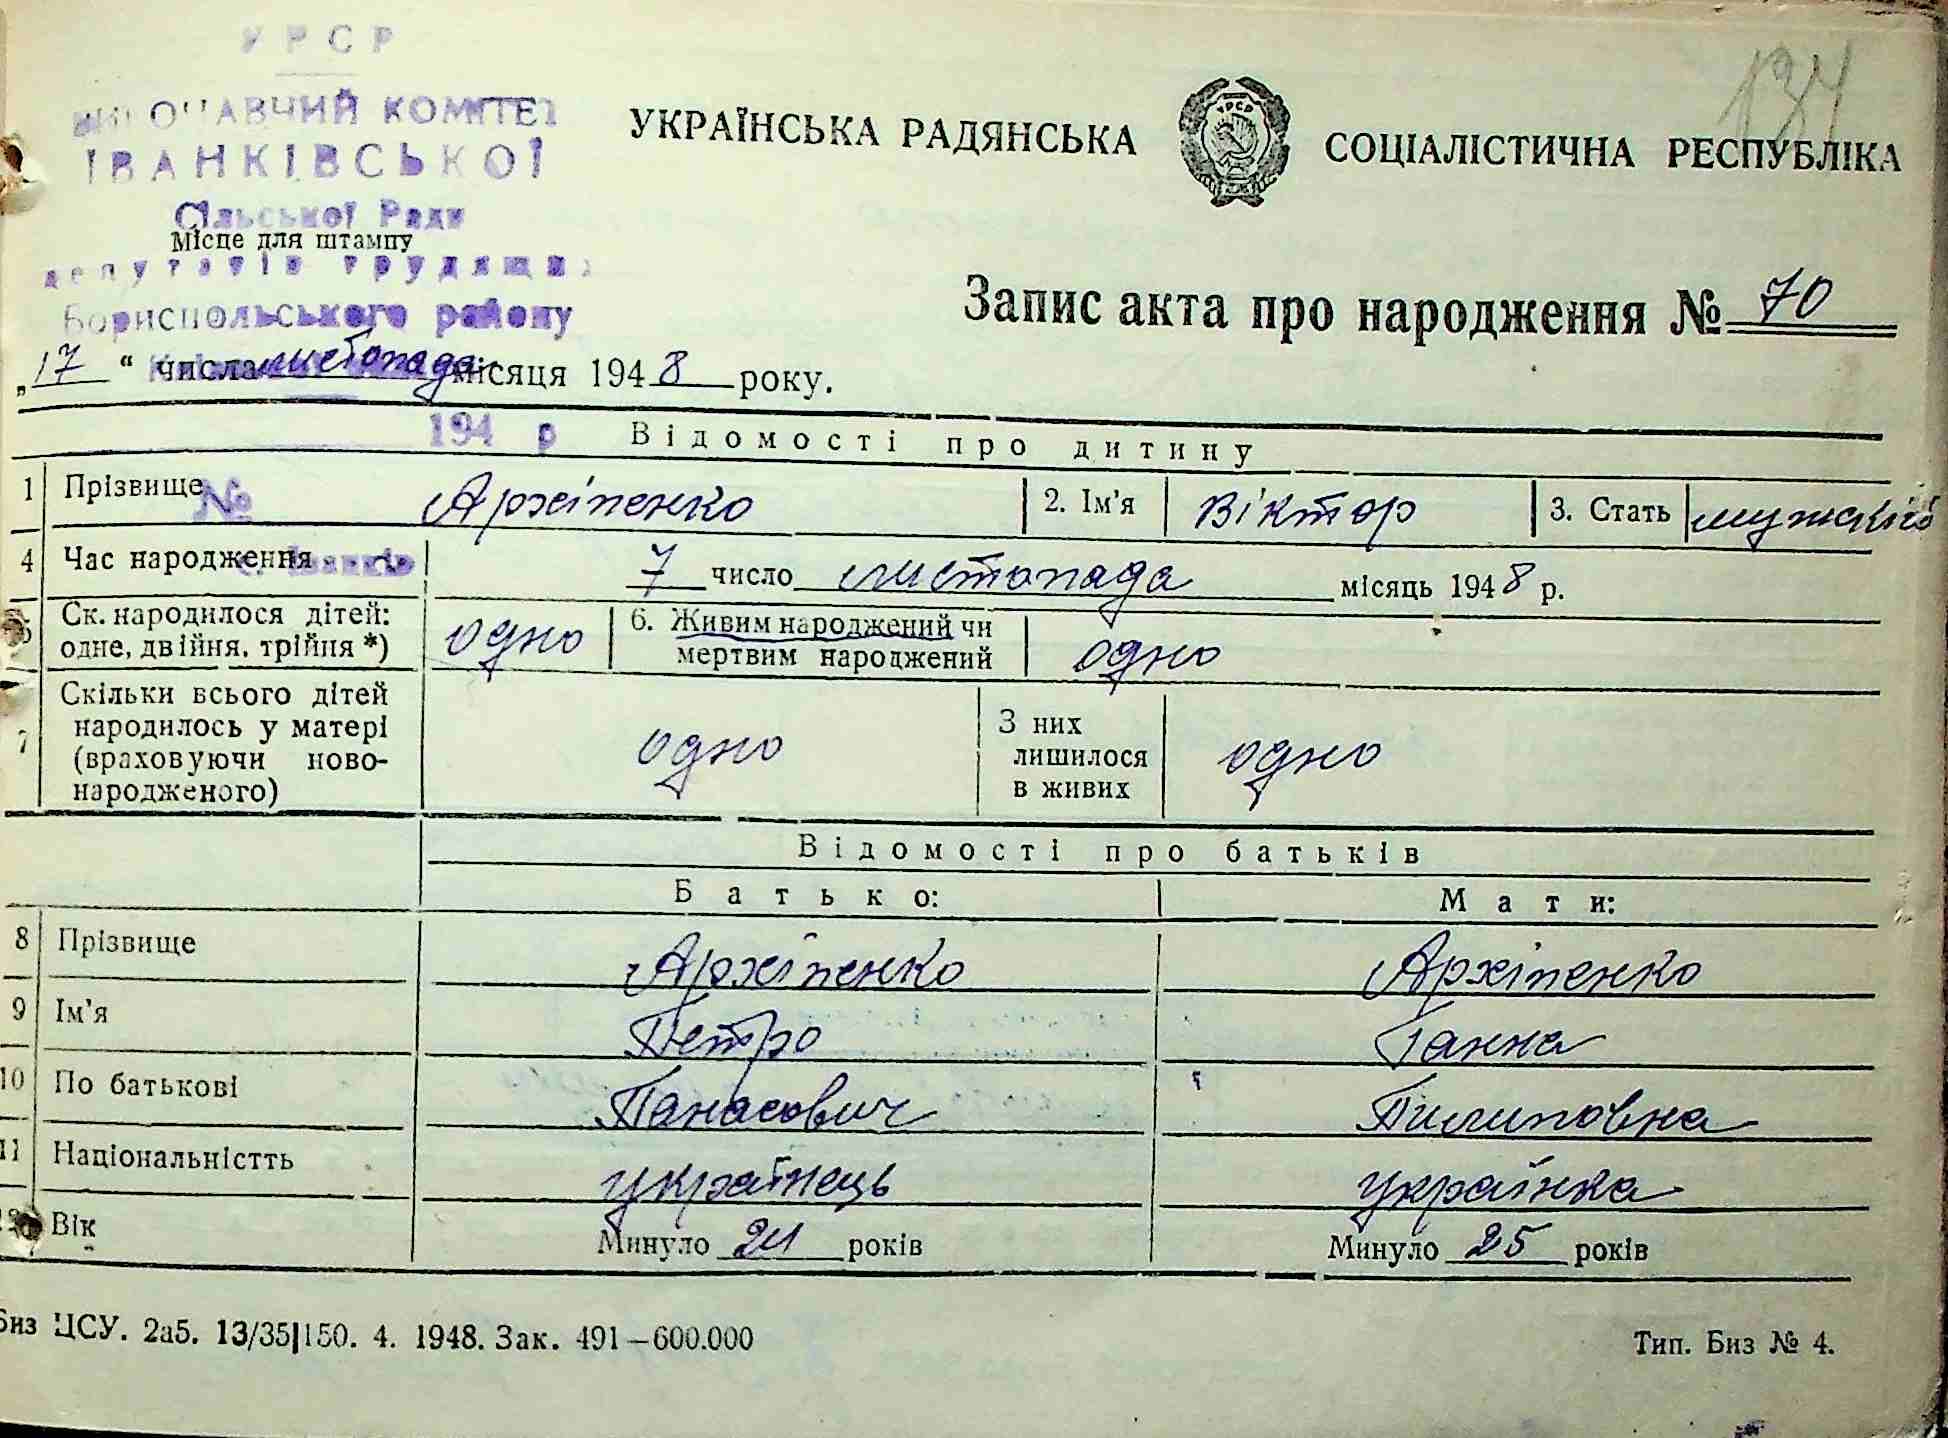 УРСР
ВИКОНАВЧИЙ КОМІТЕТ
ІВАНКІВСЬКОЇ
Сільської Ради
Місце для штампу
депутатів трудящих
Бориспольського району
УКРАЇНСЬКА РАДЯНСЬКА
УРСР
СОЦІАЛІСТИЧНА РЕСПУБЛІКА
134
Запис акта про народження № 70
„17“ числа листопада місяця 1948 року.
194 р
Відомості про дитину
1 Прізвище Архіпенко 2. Ім'я Віктор 3. Стать мужскій
№
4 Час народження 7 число листопада місяць 1948 р.
с. Іванків
5 Ск. народилося дітей: одне, двійня, трійня *) одно 6. Живим народжений чи мертвим народжений одно
7 Скільки всього дітей народилось у матері (враховуючи новонародженого) одно З них лишилося в живих одно
Відомості про батьків
Батько: Мати:
8 Прізвище Архіпенко Архіпенко
9 Ім'я Петро Ганна
10 По батькові Панасович Пилиповна
11 Національністть українець українка
12 Вік Минуло 24 років Минуло 25 років
Биз ЦСУ. 2а5. 13/35|150. 4. 1948. Зак. 491—600.000
Тип. Биз № 4.